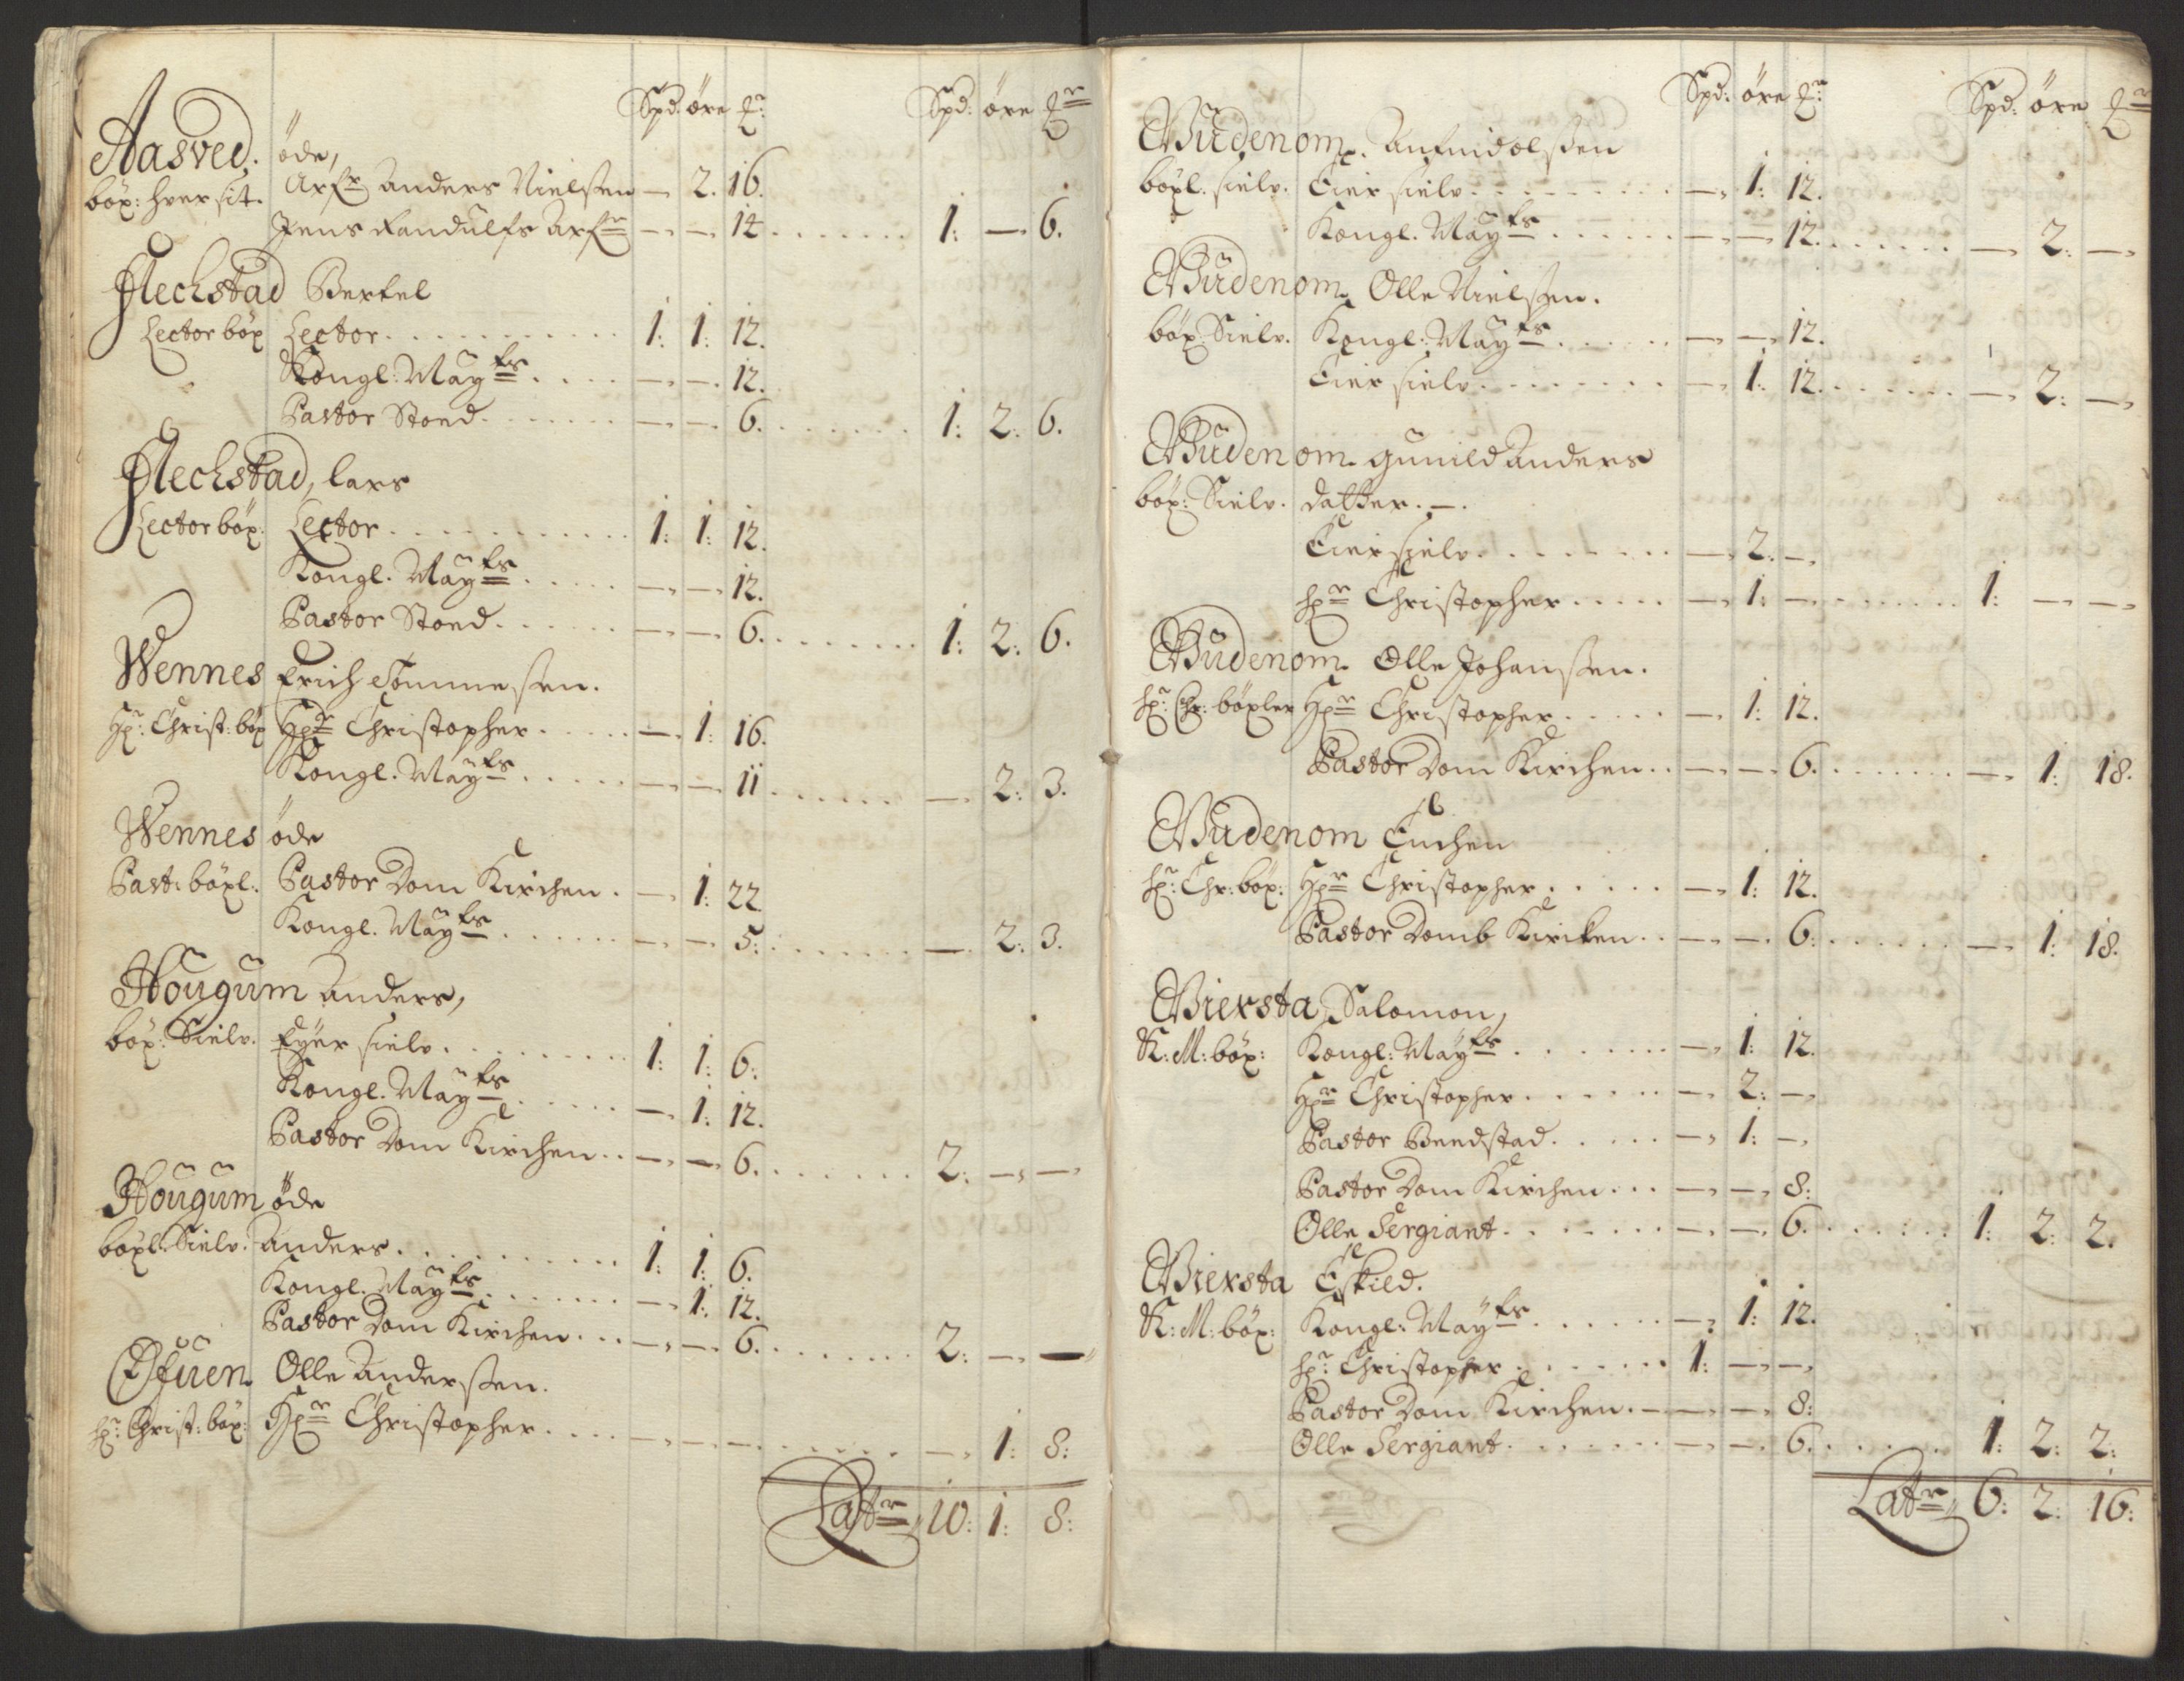 Spd: öre Spd: öre
Aasved. öde,
böx: hver sit. Arf: Anders Nielsen — 2. 16.
Jens Randulfs Arf: — — 14 . . . . . . 1: — 6.
Flechstad Bertel
Lector böx Lector . . . . . . 1: 1: 12.
Kongl: May:ts . . . . — — 12.
Pastor Stoed . . . . — — 6. . . . . . . 1: 2: 6.
Flechstad, Lars
Lector böx: Lector . . . . . . 1: 1: 12.
Kongl. May:ts . . . . — — 12.
Pastor Stoed . . . . — — 6. . . . . . . 1: 2: 6.
Wennes Erich Tommesen.
Hr: Christ: böx Hr Christopher . . . . — 1: 16.
Kongl. May:ts . . . . — — 11 . . . . . . — 2: 3.
Wennes öde
Past: böxl: Pastor Dom Kirchen . — 1: 22
Kongl. May:ts . . . . — — 5: . . . . . . — 2: 3.
Hougum Anders,
böx: Sielv. Eyer sielv . . . . . . 1: 1: 6:
Kongl. May:ts . . . . — 1: 12.
Pastor Dom Kirchen . . — — 6. . . . . . . 2: — —
Hougum öde
böxl: Sielv. Anders . . . . . . 1: 1: 6.
Kongl. May:ts . . . . — 1: 12.
Pastor Dom Kirchen . . . — — 6. . . . . . . 2: — —
Öfuen. Olle Andersen.
Hr: Christ: böx: Hr Christopher . . . . — — — . . . . . . — 1: 8:
Latr 10: 1: 8:
Spd: öre Spd: öre
Wudenom.
böxl. sielv. Eier sielv . . . . . . — 1: 12.
Kongl. May:ts . . . . — — 12. . . . . . . — 2: —
Wudenom. Olle Nielsen.
böx: Sielv. Kongl: May:ts . . . . — — 12.
Eier sielv . . . . . . — 1: 12. . . . . . . — 2: —
Wudenom. Gunild Anders
böx: Sielv. datter. —.
Eier sielv . . . . . . — 2: —
Hr Christopher . . . . — 1: — . . . . . . 1: — —
Wudenom. Olle Johansen.
Hr: Chr: böxler Hr Christopher . . . . — 1: 12.
Pastor Dom Kirchen . . — — 6. . . . . . . — 1: 18.
Wudenom Enchen
Hr: Chr: böx: Hr Christopher . . . . — 1: 12.
Pastor Domb Kircken . . — — 6: . . . . . . — 1: 18.
Wiersta Salomon,
K: M: böx: Kongl: May:ts . . . . — 1: 12.
Hr Christopher . . . . — 2: —
Pastor Bendstad . . . . — 1: —
Pastor Dom Kirchen . . . — — 8:
Olle Sergiant . . . . — — 6. . . . . . . 1: 2: 2.
Wiersta Eskild.
K: M: böx: Kongl: May:ts . . . . — 1: 12.
Hr: Christopher . . . . 1: — —
Pastor Dom Kirchen. — — — 8:
Olle Sergiant . . . . — — 6. . . . . . . 1: 2: 2:
Latr 6: 2: 16: